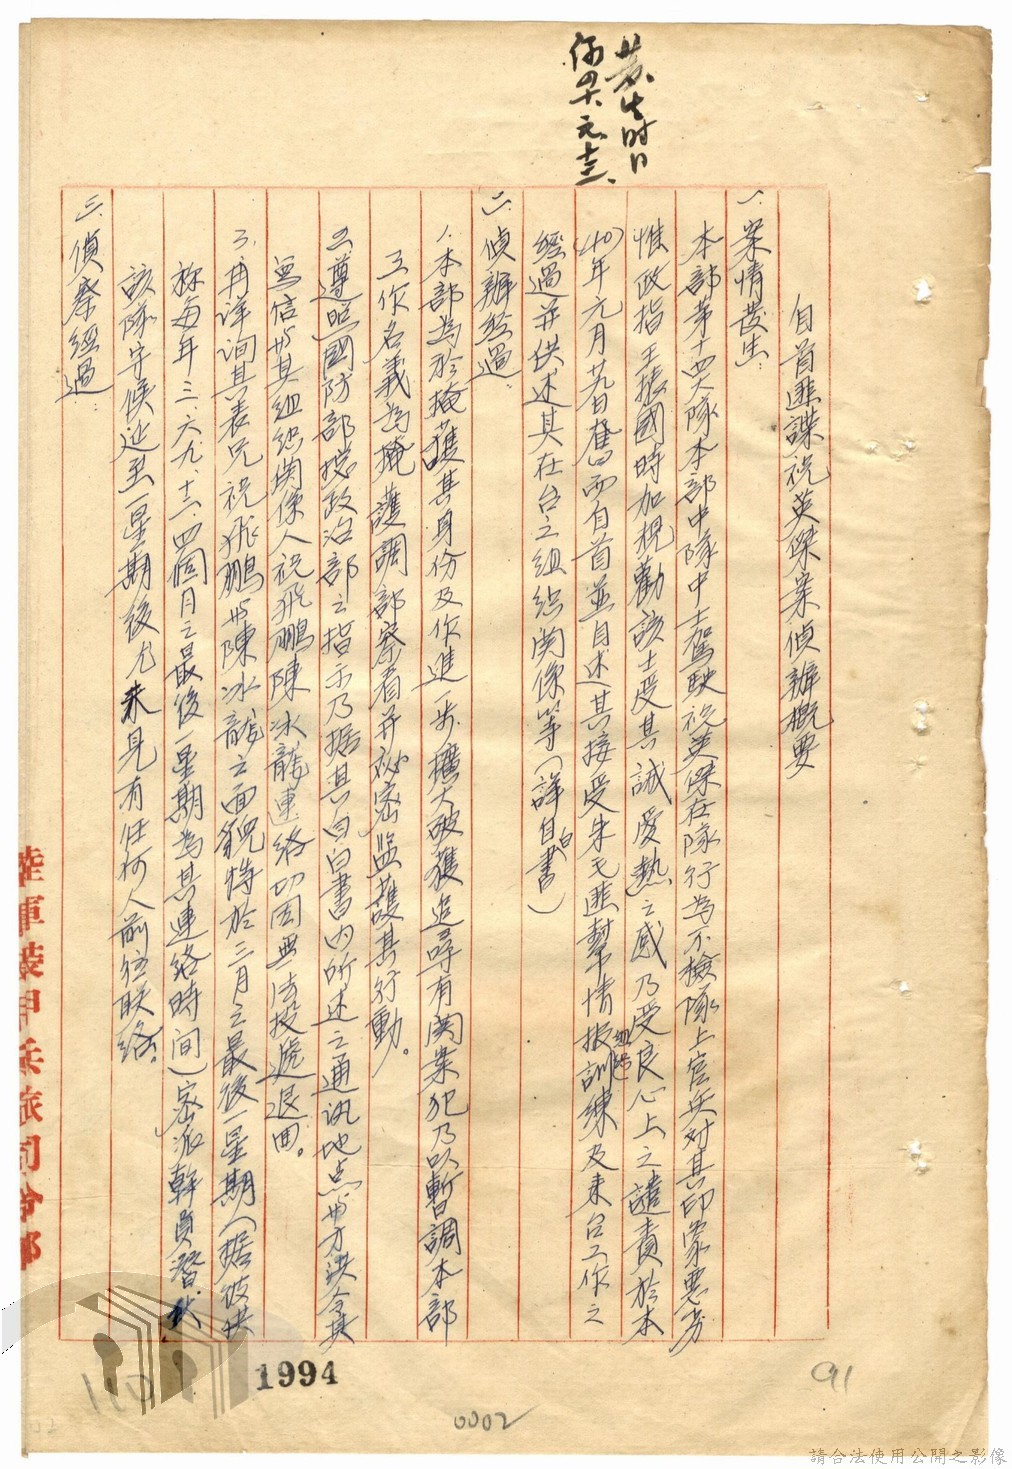 發生时日
係四十、元、廿三、
自首匪諜祝英傑案偵辦概要
一、案情發生：
本部第十四大隊本部中隊中士駕駛祝英傑在隊行為不檢隊上官兵對其印象惡劣
惟政指王振國時加規勸該士受其誠愛熱之感乃受良心上之譴責於本
(40)年元月廿九日奮而自首並自述其接受朱毛匪幫情報組織訓練及來台工作之
經過并供述其在台之組織関係等（詳自白書）
二、偵辦經過：
1.本部為於掩護其身份及作進一步擴大破獲追尋有関案犯乃以暫調本部
工作名義為掩護調部察看并秘密監護其行動。
2.遵照國防部總政治部之指示乃据其自白書内所述之通訊地点與方法令其
寫信與其組織関係人祝飛鵬陳冰龍連絡切因無法投遞退回。
3.再详询其表兄祝飛鵬與陳冰龍之面貌特於三月之最後一星期（据彼供
称每年三.六.九.十二.四個月之最後一星期為其連絡時间）密派幹員潛伏
該隊守候近至一星期後尤未見有任何人前往联絡。
三、偵察經過：
陸軍裝甲兵旅司令部
1994
0002
91
請合法使用公開之影像